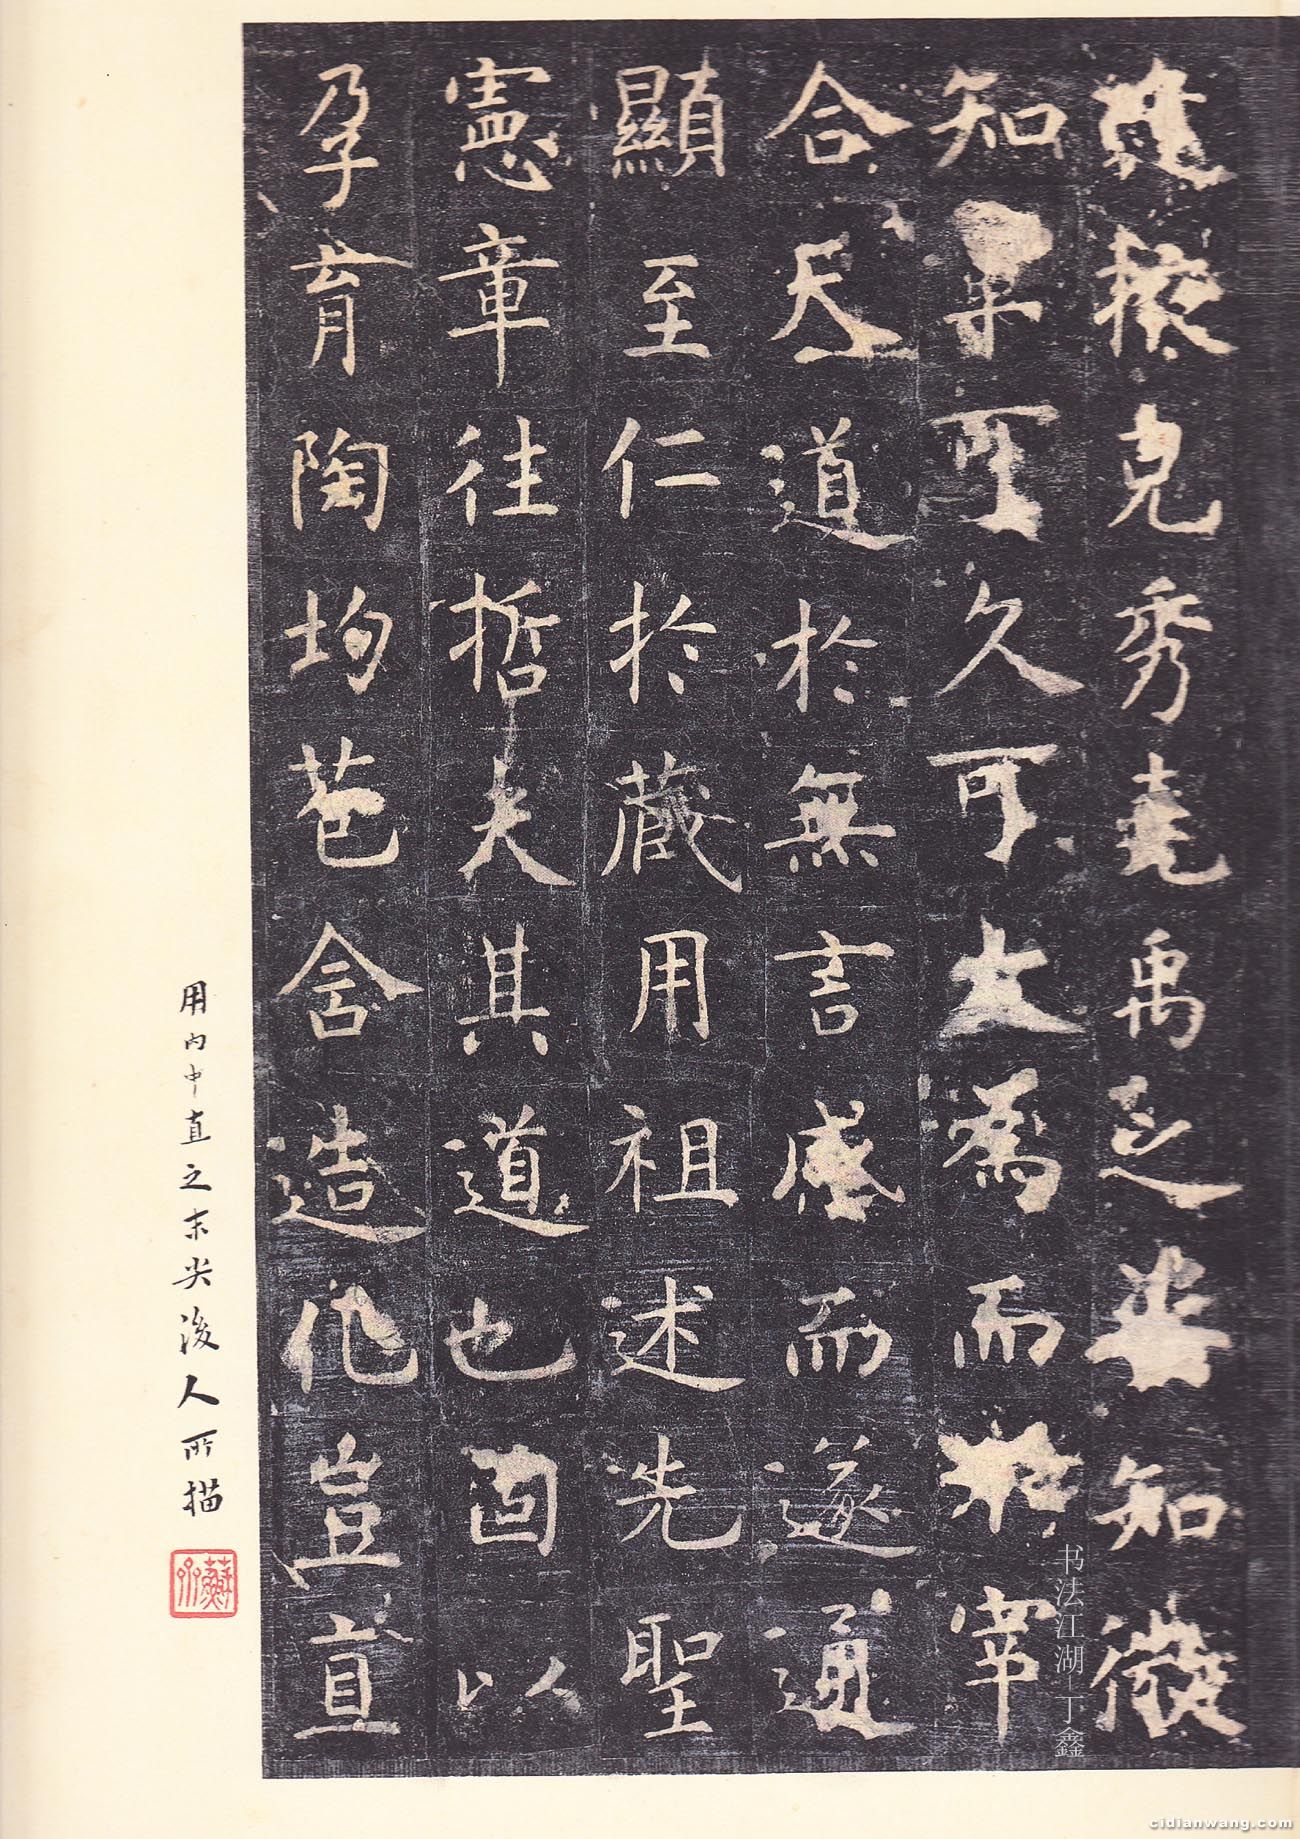 逢掖克秀堯禹之姿知微
知章可久可大為而不宰
合天道於無言感而遂通
顯至仁於藏用祖述先聖
憲章往哲夫其道也固以
孕育陶均苞含造化豈直
用内中直之末尖後人所描
书法江湖-丁鑫
cidianwang.com